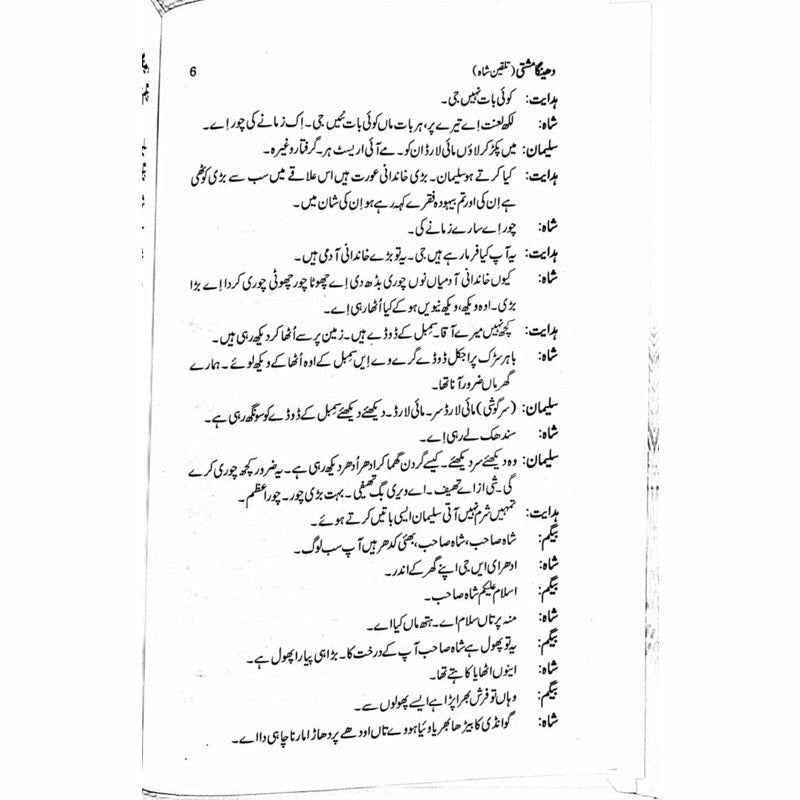 دھینگا مشتی (تلقین شاہ) 6
ہدایت: کوئی بات نہیں جی۔
شاہ: لکھ لعنت اے تیرے پر، ہر بات ماں کوئی بات نہیں جی۔ اِک زمانے کی چور اے۔
سلیمان: میں پکڑ کر لاؤں مائی لارڈ ان کو۔ مے آئی اریسٹ ہر۔ گرفتار وغیرہ۔
ہدایت: کیا کرتے ہو سلیمان۔ بڑی خاندانی عورت ہیں اس علاقے میں سب سے بڑی کوٹھی
ہے اِن کی اور تم بیہودہ فقرے کہہ رہے ہو اِن کی شان میں۔
شاہ: چور اے سارے زمانے کی۔
ہدایت: یہ آپ کیا فرما رہے ہیں جی۔ یہ تو بڑے خاندانی آدمی ہیں۔
شاہ: کیوں خاندانی آدمیاں نوں چوری بڈھ دی اے چھوٹا چور چھوٹی چوری کردا اے بڑا
بڑی۔ اوہ ویکھ، ویکھ نیویں ہو کے کیا اُٹھا رہی اے۔
ہدایت: کچھ نہیں میرے آقا۔ سِمبل کے ڈوڈے ہیں۔ زمین پر سے اُٹھا کر دیکھ رہی ہیں۔
شاہ: باہر سڑک پر اجکل ڈوڈے گرے وے اِیں سِمبل کے اوہ اُٹھا کے ویکھ لوئے۔ ہمارے
گھر ماں ضرور آنا تھا۔
سلیمان: (سرگوشی) مائی لارڈ سر۔ مائی لارڈ۔ دیکھئے دیکھئے سِمبل کے ڈوڈے کو سونگھ رہی ہے۔
شاہ: سندھک لے رہی اِے۔
سلیمان: وہ دیکھئے سر دیکھئے۔ کیسے گردن گھما کر ادھر اُدھر دیکھ رہی ہے۔ یہ ضرور کچھ چوری کرے
گی۔ شی از اے تھیف۔ اے ویری بگ تھیفی۔ بہت بڑی چور۔ چورِ اعظم۔
ہدایت: تمہیں شرم نہیں آتی سلیمان ایسی باتیں کرتے ہوئے۔
بیگم: شاہ صاحب، شاہ صاحب، بھئی کدھر ہیں آپ سب لوگ۔
شاہ: ادھر ای ایں جی اپنے گھر کے اندر۔
بیگم: اسلام علیکم شاہ صاحب۔
شاہ: منہ پر تاں سلام اے۔ ہتھ ماں کیا اے۔
بیگم: یہ تو پھول ہے شاہ صاحب آپ کے درخت کا۔ بڑا ہی پیارا پھول ہے۔
شاہ: اینوں اٹھایا کاہتے تھا۔
بیگم: وہاں تو فرش بھرا پڑا ہے ایسے پھولوں سے۔
شاہ: گوانڈی کا بیڑھا بھریا وئیا ہووے تاں اودھے پر دھاڑا مارنا چاہی دا اے۔